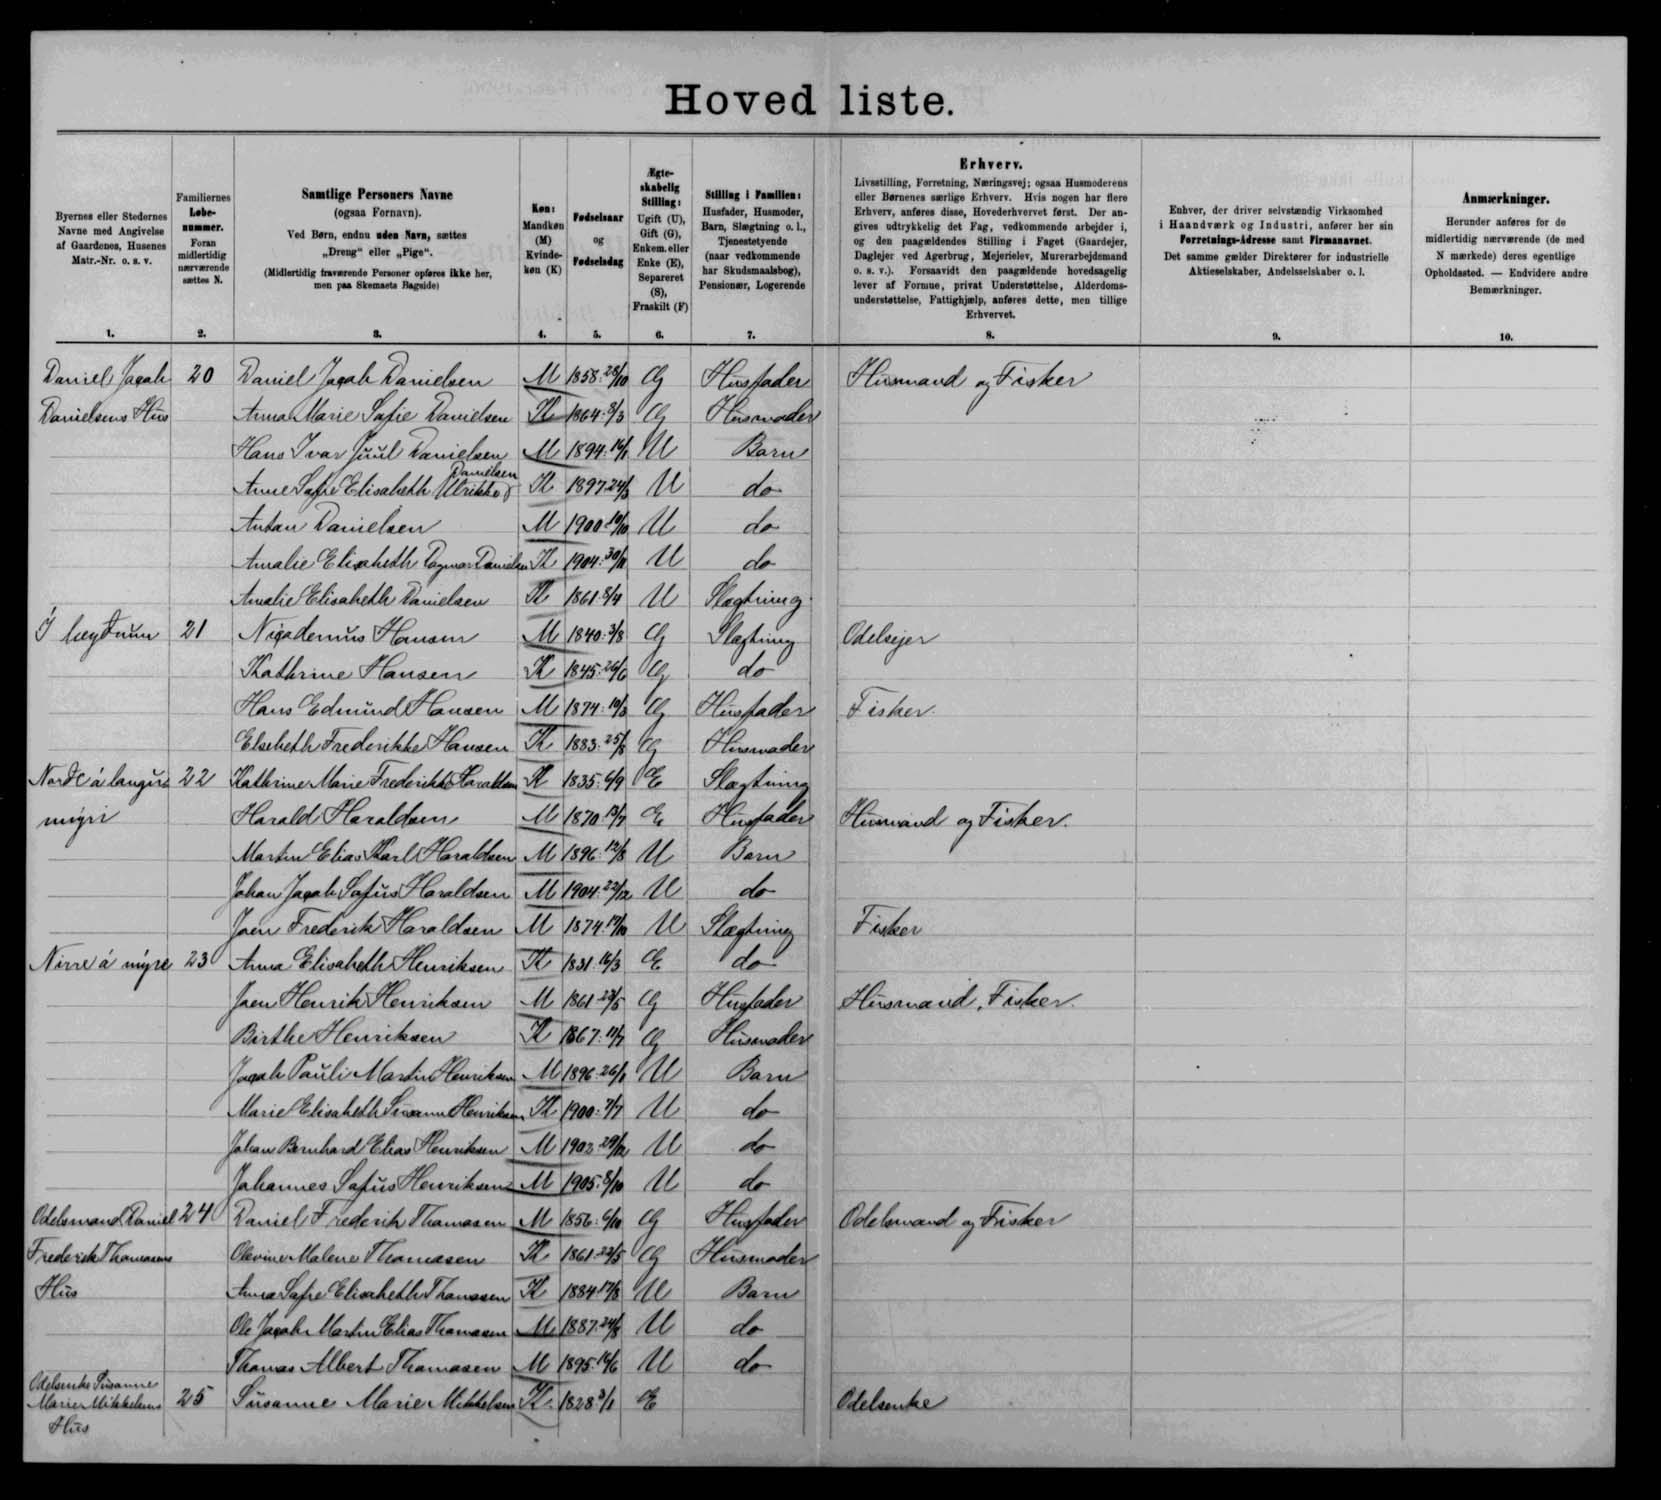 Hoved liste.
Byernes eller Stedernes
Navne med Angivelse
af Gaardenes, Husenes
Matr.-Nr. o. s. v.
1.
Familiernes
Løbe-
nummer.
Foran
midlertidig
nærværende
sættes N.
2.
Samtlige Personers Navne
(ogsaa Fornavn).
Ved Børn, endnu uden Navn, sættes
„Dreng“ eller „Pige“.
(Midlertidig fraværende Personer opføres ikke her,
men paa Skemaets Bagside)
3.
Køn:
Mandkøn
(M)
Kvinde-
køn (K)
4.
Fødselsaar
og
Fødselsdag
5.
Ægte-
skabelig
Stilling:
Ugift (U),
Gift (G),
Enkem. eller
Enke (E),
Separeret
(S),
Fraskilt (F)
6.
Stilling i Familien:
Husfader, Husmoder,
Barn, Slægtning o. l.,
Tjenestetyende
(naar vedkommende
har Skudsmaalsbog),
Pensionær, Logerende
7.
Erhverv.
Livsstilling, Forretning, Næringsvej; ogsaa Husmoderens
eller Børnenes særlige Erhverv. Hvis nogen har flere
Erhverv, anføres disse, Hovederhvervet først. Der an-
gives udtrykkelig det Fag, vedkommende arbejder i,
og den paagældendes Stilling i Faget (Gaardejer,
Daglejer ved Agerbrug, Mejerielev, Murerarbejdsmand
o. s. v.). Forsaavidt den paagældende hovedsagelig
lever af Formue, privat Understøttelse, Alderdoms-
understøttelse, Fattighjælp, anføres dette, men tillige
Erhvervet.
8.
Enhver, der driver selvstændig Virksomhed
i Haandværk og Industri, anfører her sin
Forretnings-Adresse samt Firmanavnet.
Det samme gælder Direktører for industrielle
Aktieselskaber, Andelsselskaber o. l.
9.
Anmærkninger.
Herunder anføres for de
midlertidig nærværende (de med
N mærkede) deres egentlige
Opholdssted. — Endvidere andre
Bemærkninger.
10.
Daniel Jacob 20 Daniel Jacob Danielsen M 1858 28/10 G Husfader Husmand og Fisker
Danielsens Hus Anna Marie Sofie Danielsen K 1864 8/3 G Husmoder
Hans Ivar Juul Danielsen M 1894 16/1 U Barn
Anne Sofie Elisabeth Ulrikke Danielsen K 1897 24/3 U do
Anton Danielsen M 1900 10/10 U do
Amalie Elisabeth Dagmar Danielsen K 1904 30/11 U do
Amalie Elisabeth Danielsen K 1861 8/4 U Slægtning
Í heyðnum 21 Nicodemus Hansen M 1840 3/8 G Slægtning Odelsejer
Kathrine Hansen K 1845 26/6 G do
Hans Edmund Hansen M 1874 10/3 G Husfader Fisker.
Elsebeth Frederikke Hansen K 1883 25/8 G Husmoder
Norð á langu 22 Kathrine Marie Frederikke Haraldsen K 1835 6/9 E Slægtning
mýri Harald Haraldsen M 1870 13/7 E Husfader Husmand og Fisker.
Martin Elias Karl Haraldsen M 1896 12/8 U Barn
Johan Jacob Sofus Haraldsen M 1904 22/12 U do
Joen Frederik Haraldsen M 1874 17/10 U Slægtning Fisker
Nirre á mýre 23 Anna Elisabeth Henriksen K 1831 16/3 E do
Joen Henrik Henriksen M 1861 23/5 G Husfader Husmand, Fisker.
Birthe Henriksen K 1867 11/7 G Husmoder
Jacob Pauli Martin Henriksen M 1896 26/1 U Barn
Marie Elisabeth Susanne Henriksen K 1900 7/7 U do
Johan Bernhard Elias Henriksen M 1902 29/12 U do
Johannes Sofus Henriksen M 1905 8/10 U do
Odelsmand Daniel 24 Daniel Frederik Thomasen M 1856 6/10 G Husfader Odelsmand og Fisker
Frederik Thomasens Olevine Malene Thomasen K 1861 22/5 G Husmoder
Hus Anna Sofie Elisabeth Thomasen K 1884 17/8 U Barn
Ole Jacob Martin Elias Thomasen M 1887 24/8 U do
Thomas Albert Thomasen M 1895 16/6 U do
Odelsenke Susanne
Marie Mikkelsens 25 Susanne Marie Mikkelsen K 1828 3/1 E Odelsenke
Hus